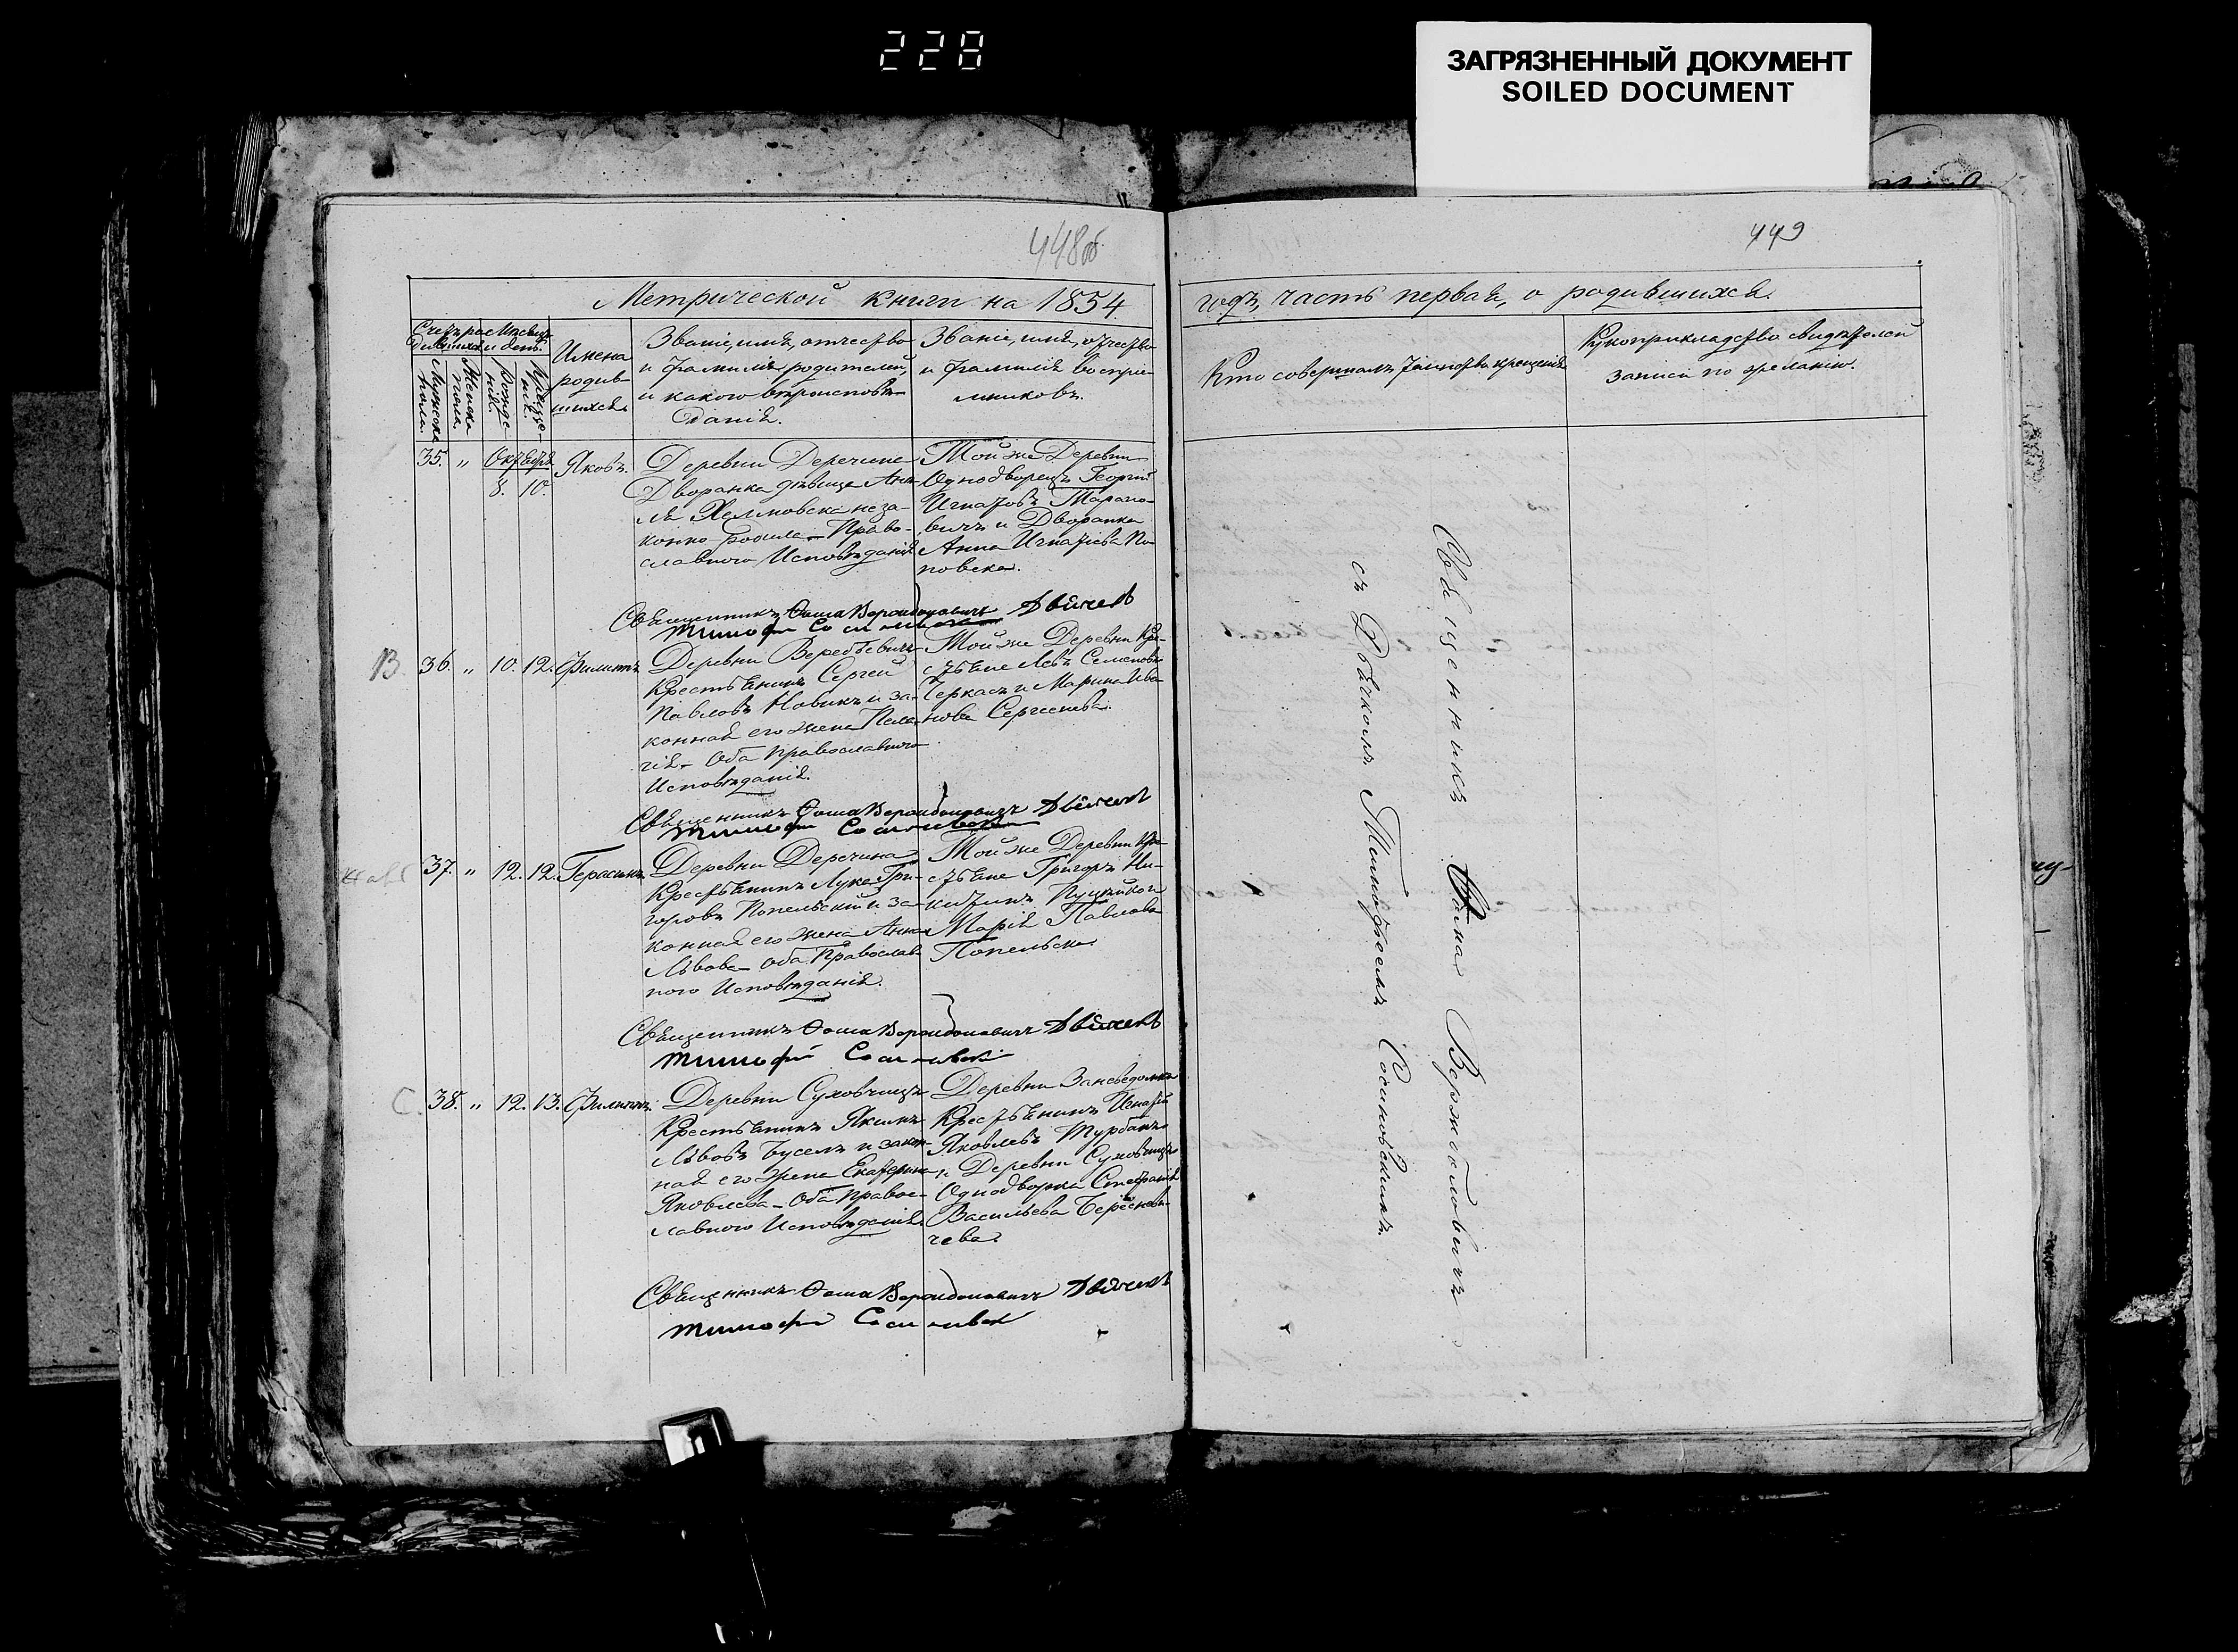 228
ЗАГРЯЗНЕННЫЙ ДОКУМЕНТ
SOILED DOCUMENT
448об
449
Метрической книги на 1854
годъ, часть первая, о родившихся.
Счетъ ро- Мѣсяцъ
дившихся и день.
Мужеска пола.
Женска пола.
Рожде-
нія.
Креще-
нія.
Имена
родив-
шихся.
Званіе, имя, отчество
и фамилія родителей,
и какого вѣроисповѣ-
данія.
Званіе, имя, отчество
и фамилія воспріе-
мниковъ.
Кто совершалъ таинство крещенія
Рукоприкладство свидѣтелей
записи по желанію.
35. " Октября 8. 10. Яковъ.
Деревни Деречине
Дворянка дѣвица
Хелмовска неза-
конно родила – Право-
славного Исповѣданія
Той же Деревни
Однодворецъ Георгій
Игнатовъ Марцно-
вичъ и Дворянка
Анна Игнатіева По-
повска.
Священникъ Фома
Тимофей
В 36. " 10. 12. Филиппъ
Деревни
Крестьянинъ Сергей
Павловъ Новикъ и за-
конная его жена Пела-
гія – Оба Православного
Исповѣданія.
Той же Деревни Кре-
стьяне Левъ Семеновъ
Черкасъ и Марина Ива-
нова Сергеева.
Священникъ Фома
Тимофей
37. " 12. 12. Герасимъ
Деревни Деречина
Крестьянинъ Лука Гри-
горовъ Попельскій и за-
конная его жена Анна
Львова – Оба Православ-
ного Исповѣданія.
Той же Деревни Кре-
стьяне Григоръ Ни-
китинъ
Марія Павлова
Попельска
Священникъ Фома
Тимофей
С. 38. " 12. 13. Филиппъ
Деревни Суховчицъ
Крестьянинъ Якимъ
Львовъ Буселъ и закон-
ная его жена Екатерина
Яковлева – Оба Право-
славного Исповѣданія
Деревни
Крестьянинъ Игнатій
Яковлевъ Турбанъ
и Деревни Суховчицъ
Однодворка Стефанія
Васильева Береснев-
чева.
Священникъ Фома
Тимофей
Священникъ Фома
съ Дьячкомъ Тимофеемъ Сосновскимъ.